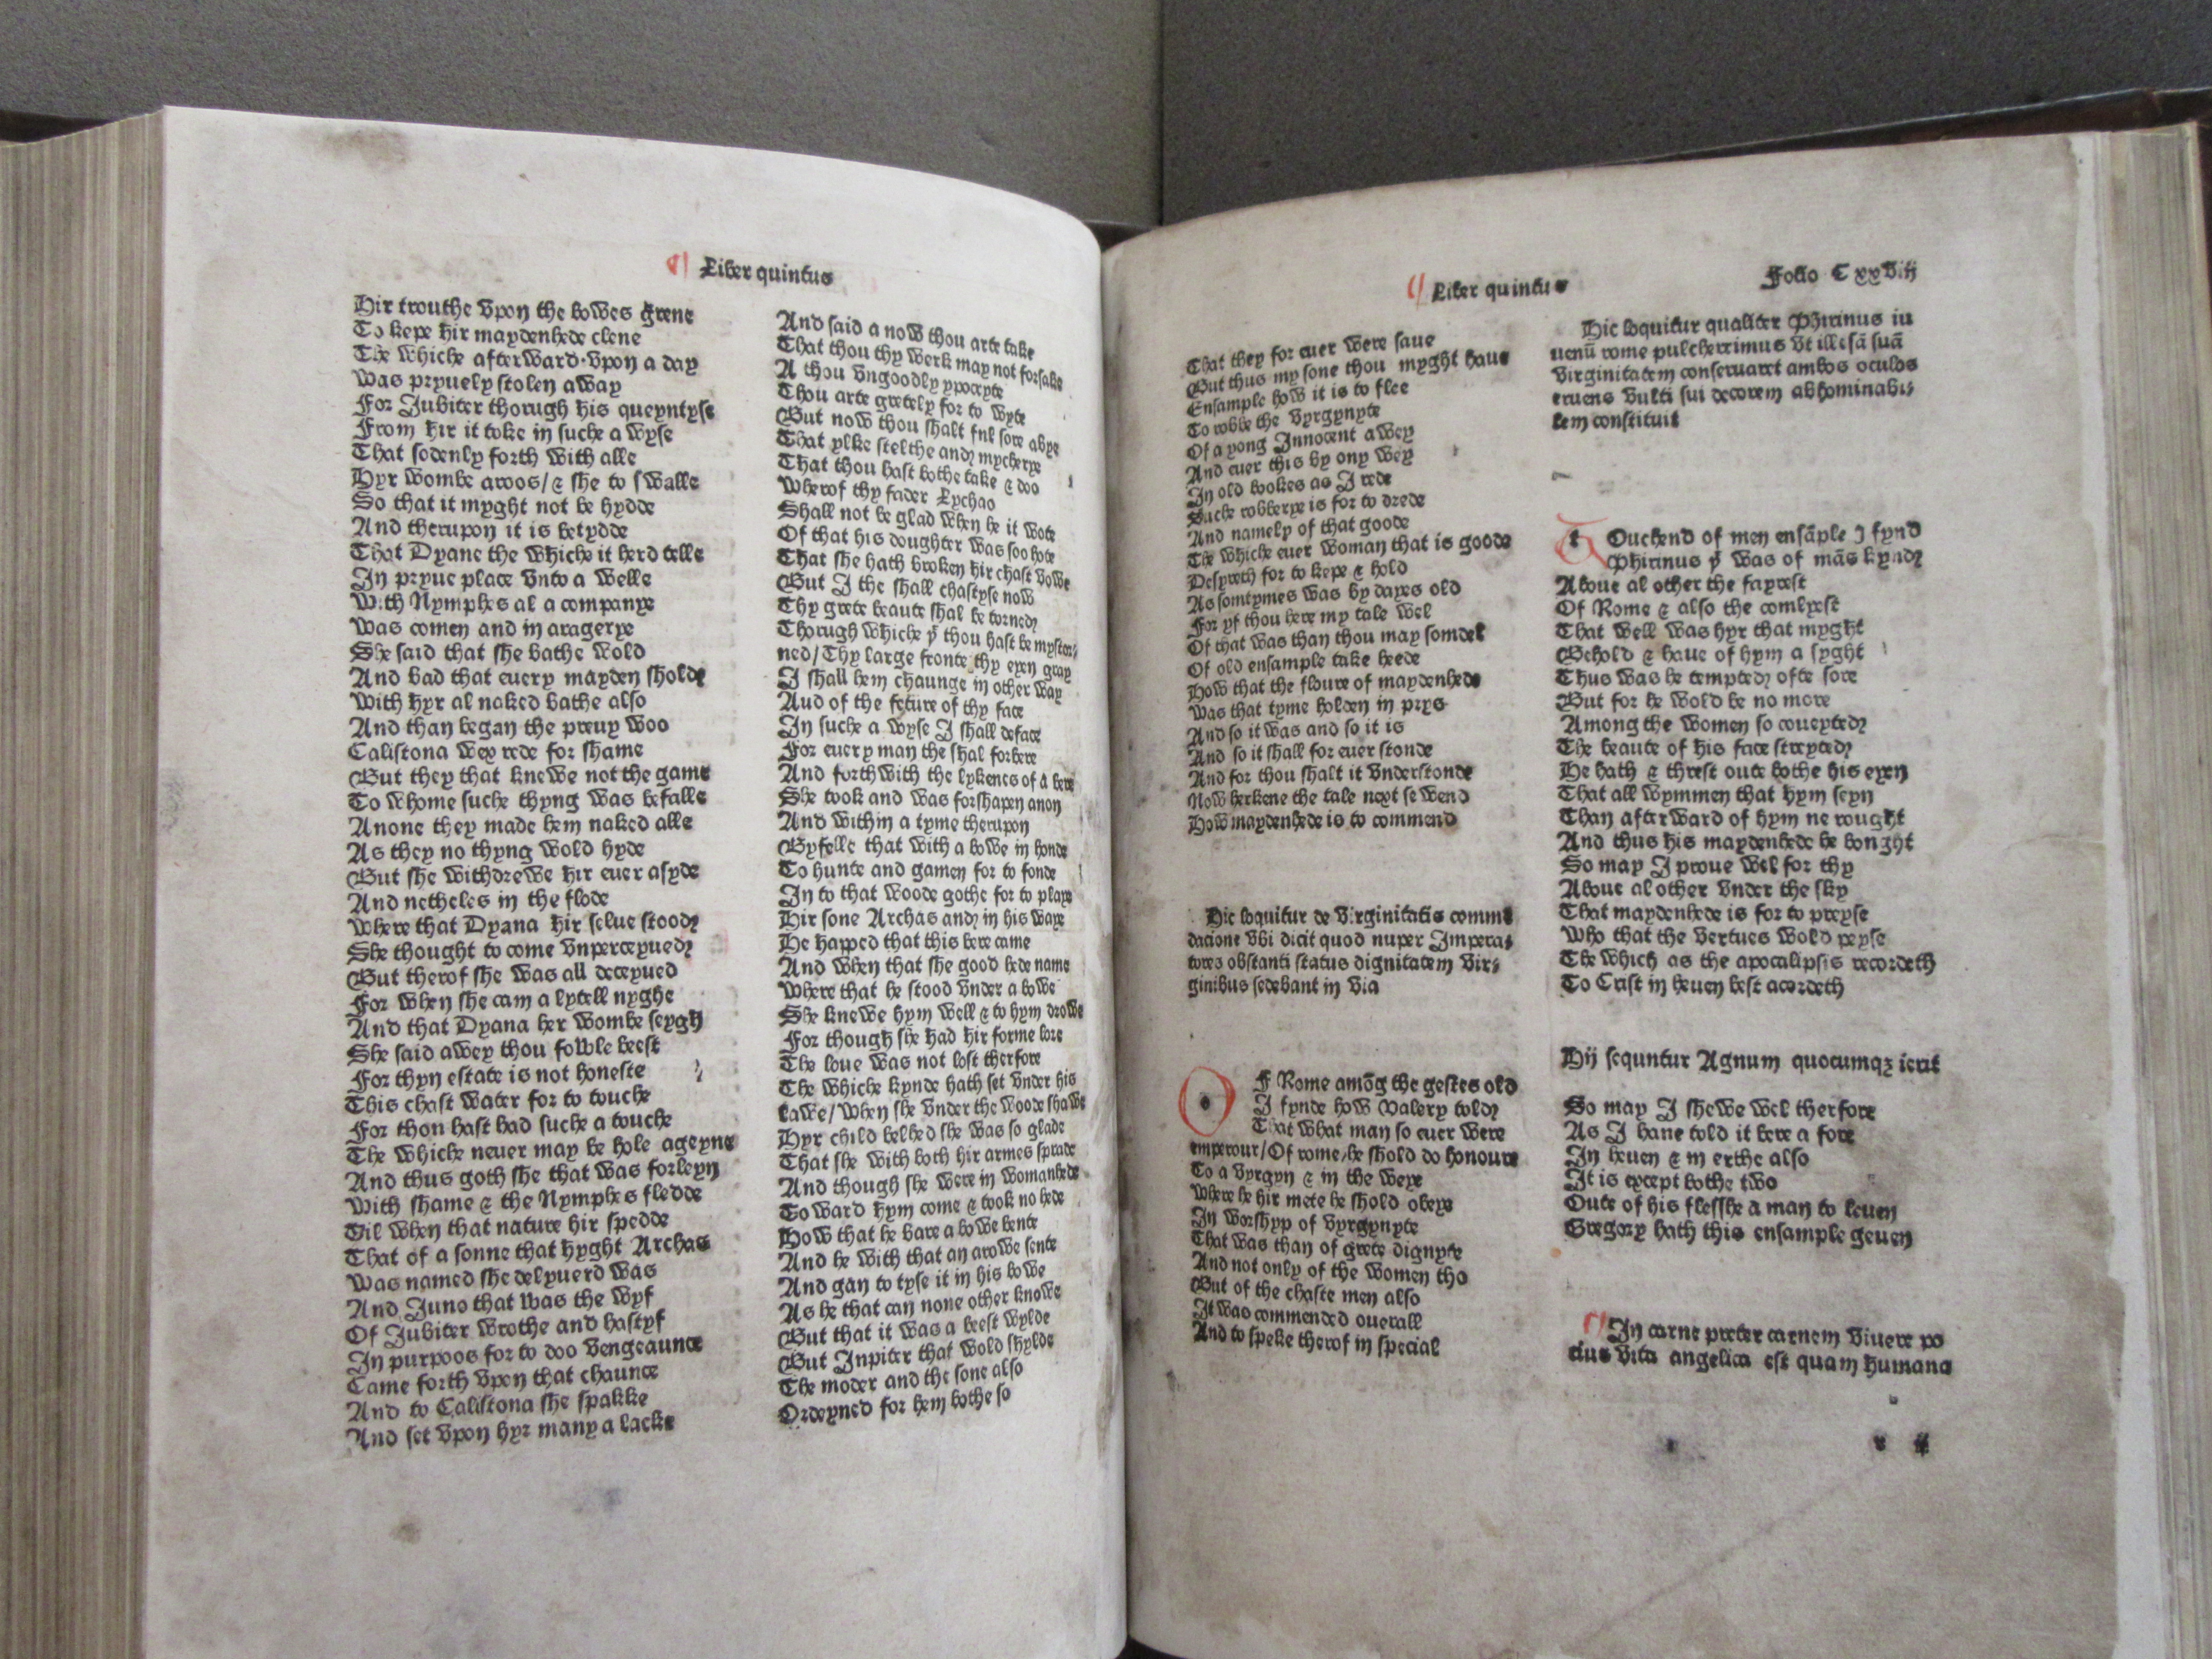 Liber quintus
Hir trouthe vpon the bowes grene
To kepe hir maydenhede clene
The whiche afterward vpon a day
Was pryuely stolen away
For Jubiter thorugh his queyntyse
From hir it toke in suche a wyse
That sodenly forth with alle
Hyr wombe aroos/& she to swalle
So that it myght not be hydde
And therupon it is betydde
That Dyane the whiche it herd telle
In pryue place vnto a welle
With Nymphes al a companye
Was comen and in aragerye
She said that she bathe wold
And bad that euery mayden shold
With hyr al naked bathe also
And than began the preuy woo
Calistona wex rede for shame
But they that knewe not the game
To whome suche thyng was befalle
Anone they made hem naked alle
As they no thyng wold hyde
But she withdrewe hir euer asyde
And netheles in the flode
Where that Dyana hir selue stood
She thought to come vnperceyued
But therof she was all deceyued
For when she cam a lytell nyghe
And that Dyana her wombe seygh
She said awey thou fowle beest
For thyn estate is not honeste
This chast water for to touche
For thou hast had suche a touche
The whiche neuer may be hole ageyne
And thus goth she that was forleyn
With shame & the Nymphes fledde
Til when that nature hir spedde
That of a sonne that hyght Archas
Was named she delyuerd was
And Juno that was the wyf
Of Jubiter wrothe and hastyf
In purpoos for to doo vengeaunce
Came forth vpon that chaunce
And to Calistona she spakke
And set vpon hyr many a lacke
And said a now thou arte take
That thou thy werk may not forsake
A thou vngoodly ypocryte
Thou arte gretely for to wyte
But now thou shalt ful sore abye
That ylke stelthe and mycherye
That thou hast bothe take & doo
Wherof thy fader Lychao
Shall not be glad when he it wote
Of that his doughter was soo hote
That she hath broken hir chast vowe
But I the shall chastyse now
Thy grete beaute shal be torned
Thorugh whiche yͭ thou hast be mystor⸗
ned/Thy large fronte thy eyen gray
I shall hem chaunge in other way
Aud of the feture of thy face
In suche a wyse I shall deface
For euery man the shal forbere
And forthwith the lykenes of a bere
She took and was forshapen anon
And within a tyme therupon
Byfelle that with a bowe in honde
To hunte and gamen for to fonde
In to that woode gothe for to playe
Hir sone Archas and in his waye
He happed that this bere came
And when that she good hede name
Where that he stood vnder a bowe
She knewe hym well & to hym drowe
For though she had hir forme lore
The loue was not lost therfore
The whiche kynde hath set vnder his
lawe/when she vnder the woode shawe
Hyr child behed she was so glade
That she with both hir armes sprade
And though she were in womanhede
Toward hym come & took no hede
How that he bare a bowe bente
And he with that an arowe sente
And gan to tyse it in his bowe
As he that can none other knowe
But that it was a beest wylde
But Jnpiter that wold shylde
The moder and the sone also
Ordeyned for hem bothe so
Liber quintus
Folio Cxxviij
That they for euer were saue
But thus my sone thou myght haue
Ensample how it is to flee
To robbe the vyrgynyte
Of a yong Innocent awey
And euer this by ony wey
In old bookes as I rede
Suche robberye is for to drede
And namely of that goode
The whiche euer woman that is goode
Desyreth for to kepe & hold
As somtymes was by dayes old
For yf thou here my tale wel
Of that was than thou may somdel
Of old ensample take heede
How that the floure of maydenhede
Was that tyme holden in prys
And so it was and so it is
And so it shall for euer stonde
And for thou shalt it vnderstonde
Now herkene the tale next sewend
How maydenhede is to commend
Hic loquitur de virginitatis comme
dacione vbi dicit quod nuper Impera⸗
tores obstanti status dignitatem vir⸗
ginibus sedebant in via
OF Rome amōg the gestes old
I fynde how Valery told
That what man so euer were
emperour/Of rome/he shold do honoure
To a vyrgyn & in the weye
Where he hir mete he shold obeye
In worshyp of vyrgynyte
That was than of grete dignyte
And not only of the women tho
But of the chaste men also
It was commended ouerall
And to speke therof in special
Hic loquitur qualiter Phirinus iu
uenū rome pulcherrimus vt illesā suā
virginitatem conseruaret ambos oculos
eruens vulti sui decorem abhominabi⸗
lem constituit
tOuchend of men ensāple I fynd
Phirinus yͭ was of mās kynd
Aboue al other the fayrest
Of Rome & also the comlyest
That well was hyr that myght
Behold & haue of hym a syght
Thus was he tempted ofte sore
But for he wold be no more
Among the women so coueyted
The beaute of his face streyted
He hath & threst oute bothe his eyen
That all wymmen that hym seyn
Than afterward of hym ne rought
And thus his maydenhede he bonght
So may I proue wel for thy
Aboue al other vnder the sky
That maydenhede is for to preyse
Who that the vertues wold peyse
The which as the apocalipsis recordeth
To Crist in heuen best acordeth
Hij sequntur Agnum quocumqz ierit
So may I shewe wel therfore
As I hane told it here a fore
In heuen & in erthe also
It is except bothe two
Oute of his flesshe a man to leuen
Gregory hath this ensample geuen
In carne preter carnem viuere po
cius vita angelica est quam humana
r ij